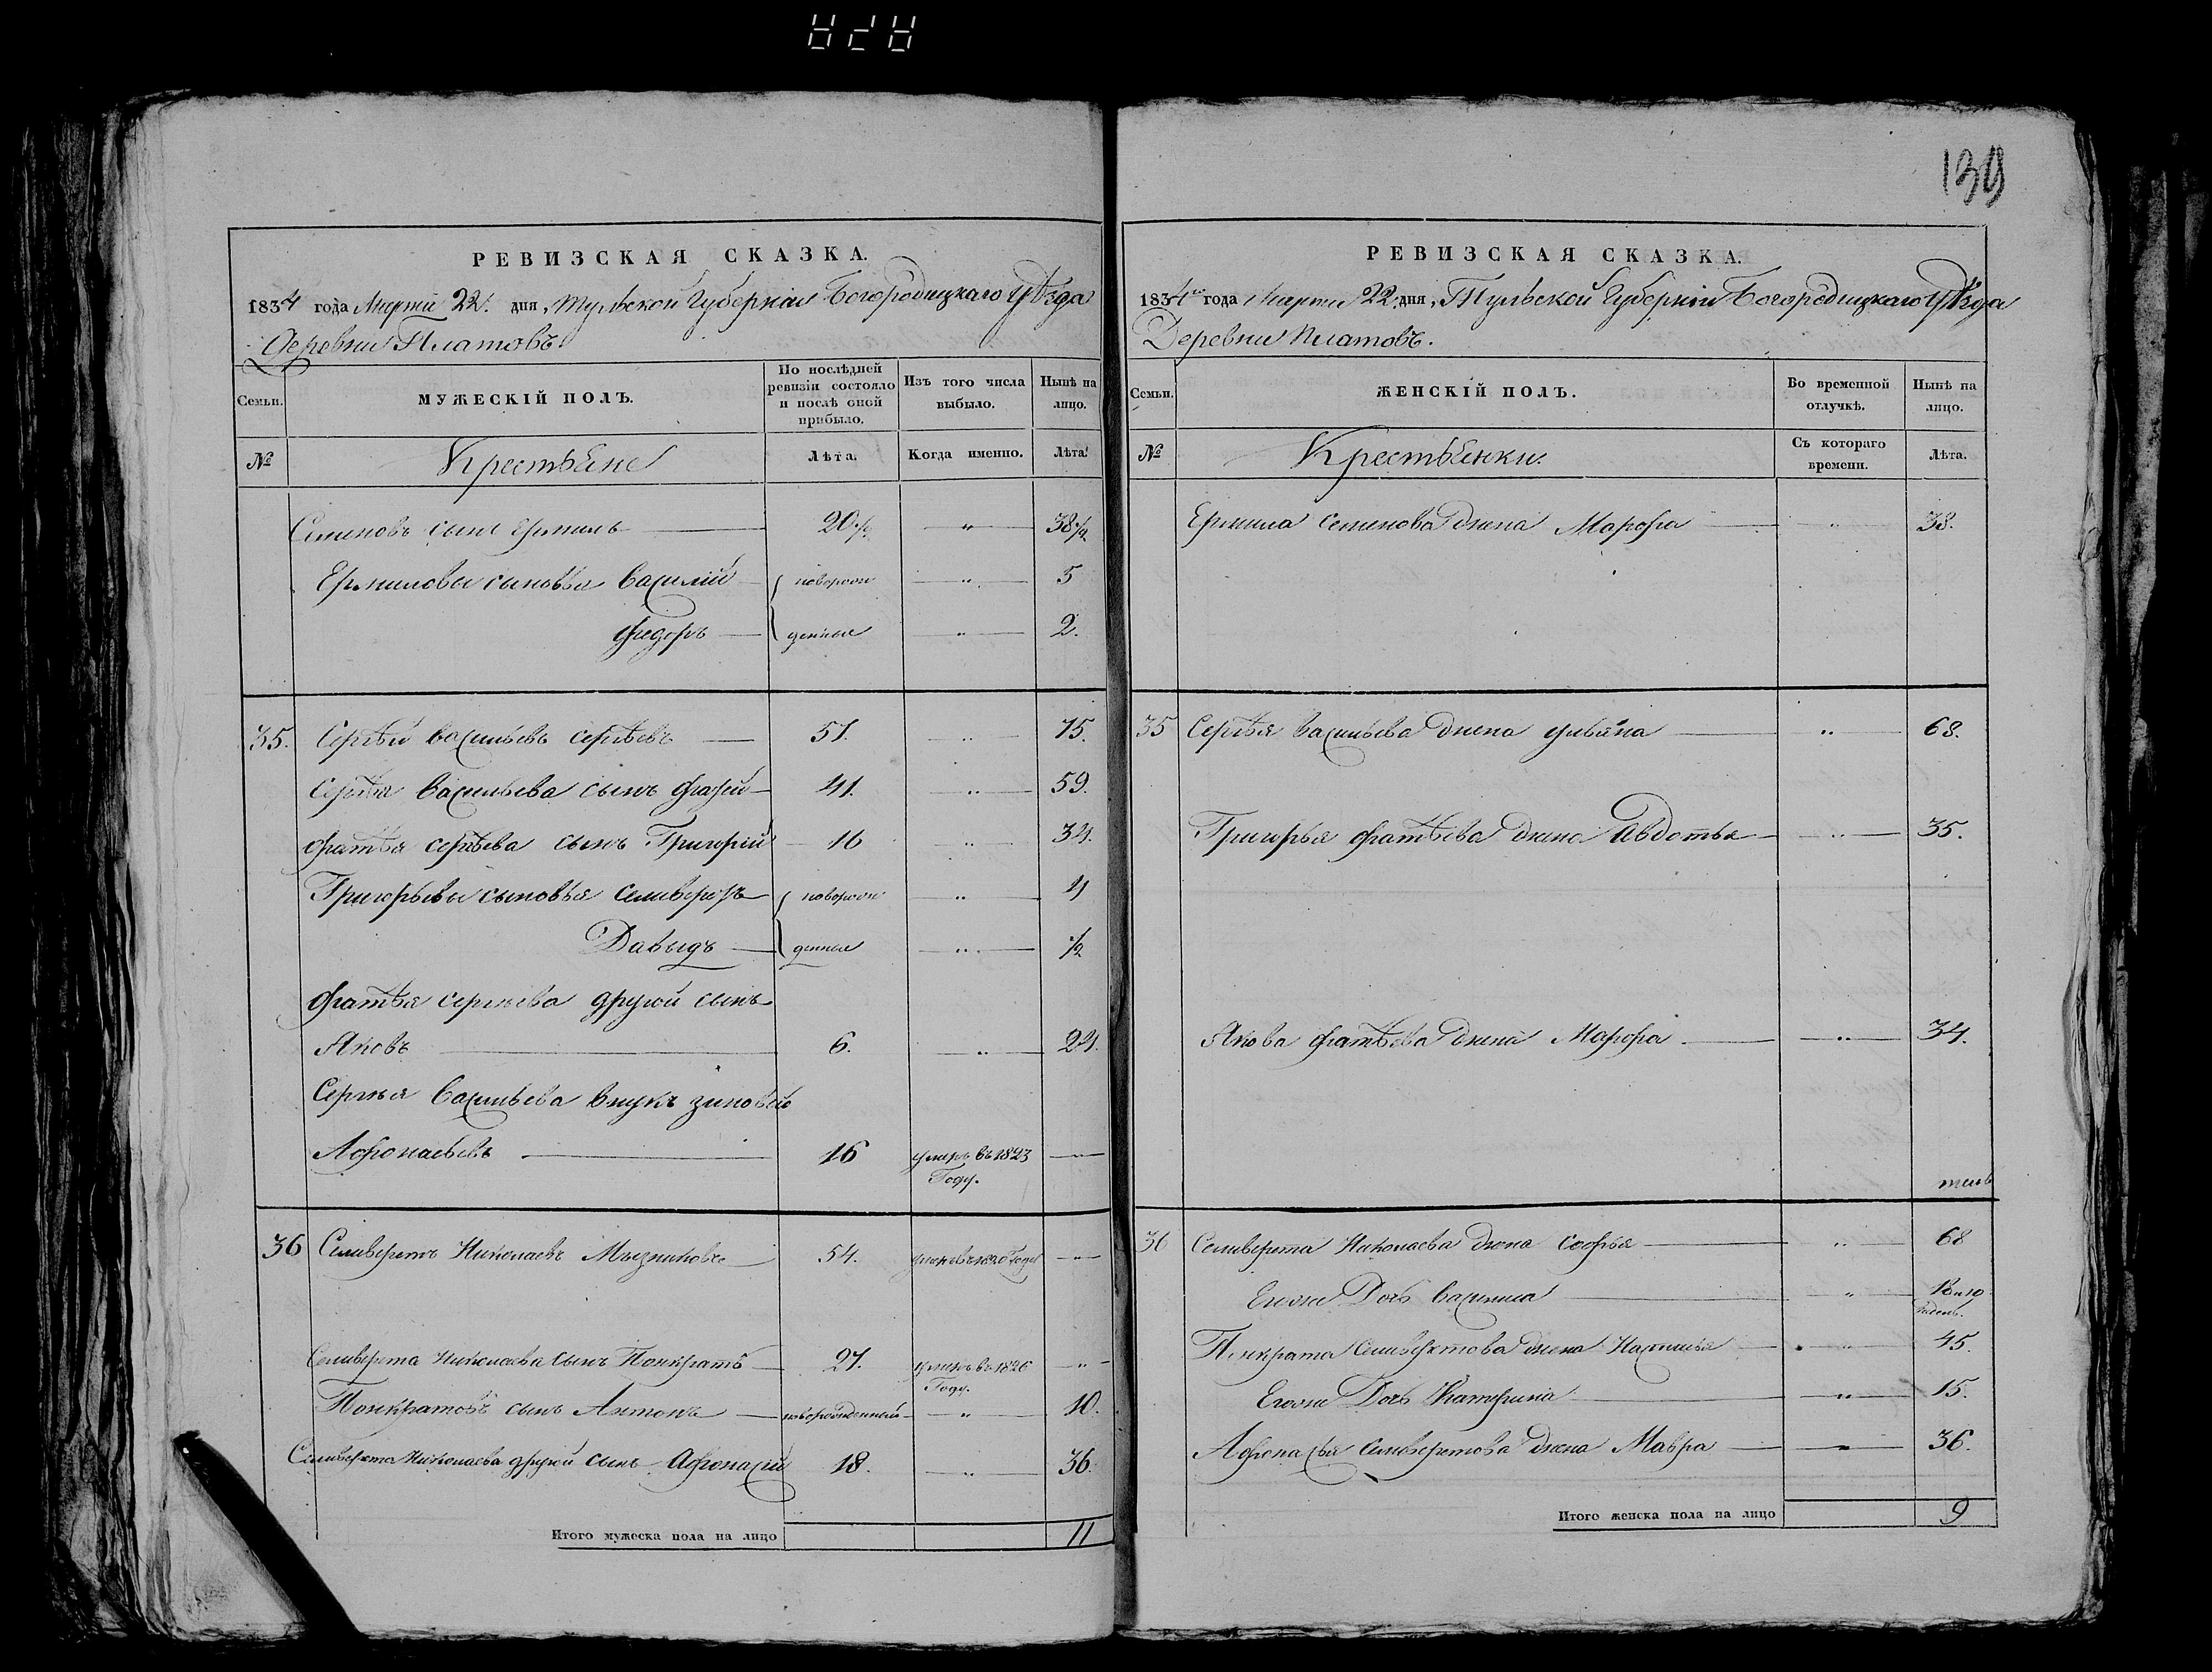 139
РЕВИЗСКАЯ СКАЗКА.
1834 года Марта 22. дня, Тульской Губерніи Богородицкаго Уѣзда
Деревни Платовъ.
Семьи.
МУЖЕСКІЙ ПОЛЪ.
По послѣдней ревизіи состояло и послѣ оной прибыло.
Изъ того числа выбыло.
Нынѣ на лицо.
№
Крестьяне
Лѣта.
Когда именно.
Лѣта.
Семеновъ сынъ Ермилъ 20 1/2 " 38 1/2
Ермиловы сыновья Василий новорож " 5
Федоръ денные " 2.
35. Сергѣй Васильевъ Сергѣевъ 57. " 75.
Сергѣя Васильева сынъ Фатей 41. " 59.
Фатѣя Сергѣева сынъ Григорій 16 " 34.
Григорьевы сыновья Селиверстъ новорож " 4
Давыдъ денные " 1/2
Фатѣя Сергѣева другой сынъ
Яковъ 6. " 24.
Сергѣя Васильева внукъ Зиновей
Афонасьевъ 16 умеръ въ 1823 Году.
36 Селиверстъ Николаевъ 54. умеръ въ 1820 Году "
Селиверста Николаева сынъ Понкратъ 27. умеръ въ 1826 Году. "
Понкратовъ сынъ Антонъ новорожденный " 10.
Селиверста Николаева другой сынъ Афонасій 18. " 36.
Итого мужеска пола на лицо 11
РЕВИЗСКАЯ СКАЗКА.
1834 года Марта 22 дня, Тульской Губерніи Богородицкаго Уѣзда
Деревни Платовъ.
Семьи.
ЖЕНСКІЙ ПОЛЪ.
Во временной отлучкѣ.
Нынѣ на лицо.
№
Крестьянки.
Съ котораго времени.
Лѣта.
Ермила Семенова жена Марфа " 38.
35 Сергѣя Васильева жена Ульяна " 68.
Григорья Фатѣева жена Авдотья " 35.
Якова Фатѣева жена Марфа " 34.
36 Селиверста Николаева жена Софья " 68
Еговна Дочь Василиса "
Понкрата Селиверстова жена Настасья " 45.
Еговна Дочь Катерина " 15.
Афонасья Селиверстова жена Мавра " 36.
Итого женска пола на лицо 9